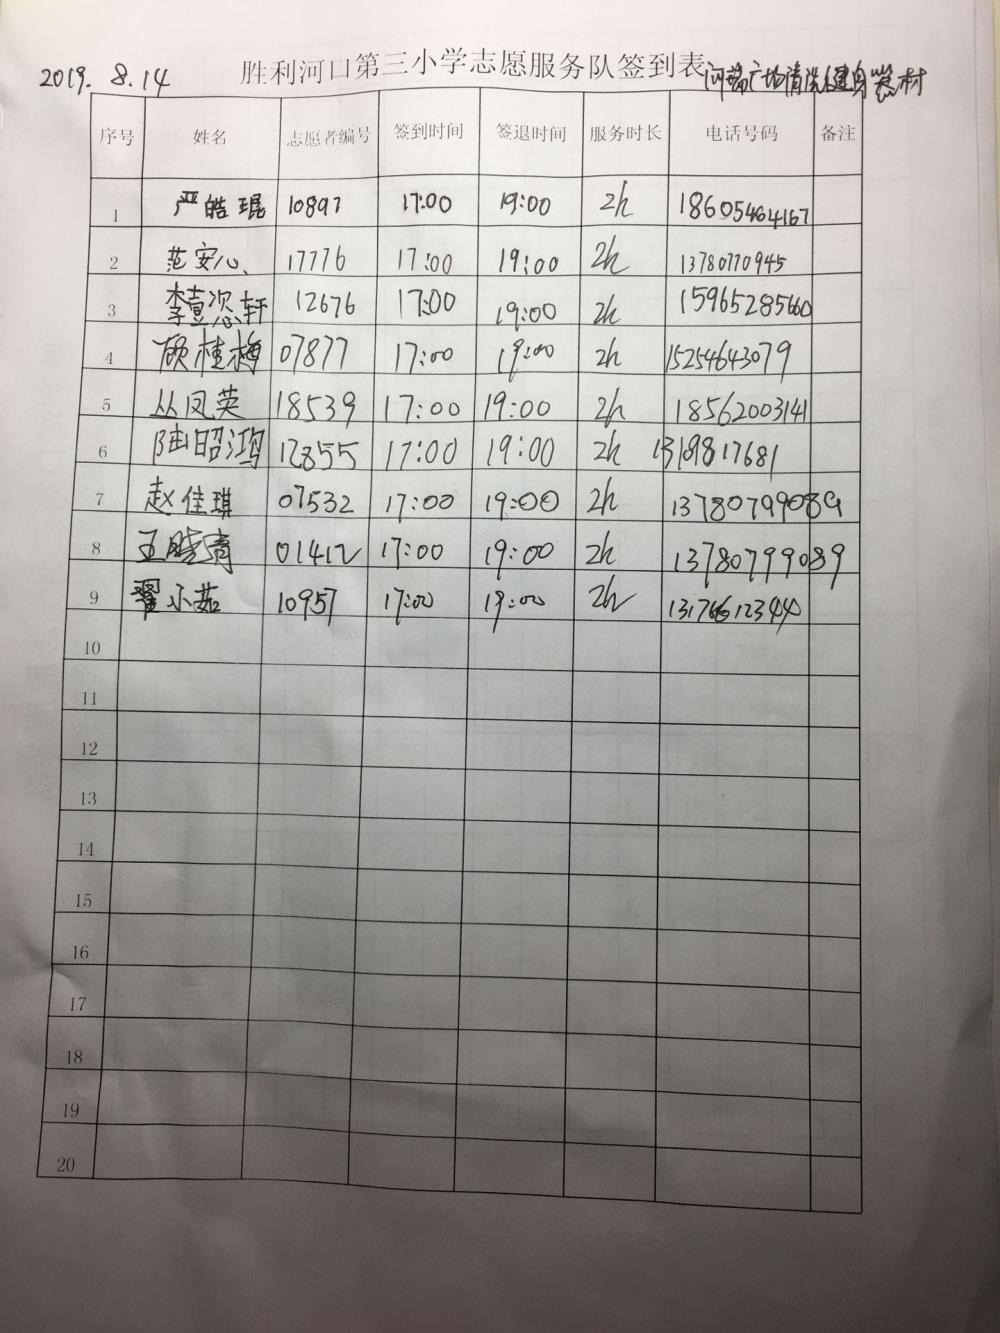 2019. 8.14 胜利河口第三小学志愿服务队签到表 河端广场清洗健身器材
序号 姓名 志愿者编号 签到时间 签退时间 服务时长 电话号码 备注
1 严皓琨 10897 17:00 19:00 2h 18605464167
2 范安心 17776 17:00 19:00 2h 13780770945
3 李壹恣轩 12676 17:00 19:00 2h 15965285660
4 顾桂梅 07877 17:00 19:00 2h 15254643079
5 丛凤英 18539 17:00 19:00 2h 18562003141
6 陆昭鸿 12855 17:00 19:00 2h 13189817681
7 赵佳琪 07532 17:00 19:00 2h 13780799089
8 王晓青 01412 17:00 19:00 2h 13780799089
9 翟小茹 10957 17:00 19:00 2h 13176612344
10
11
12
13
14
15
16
17
18
19
20